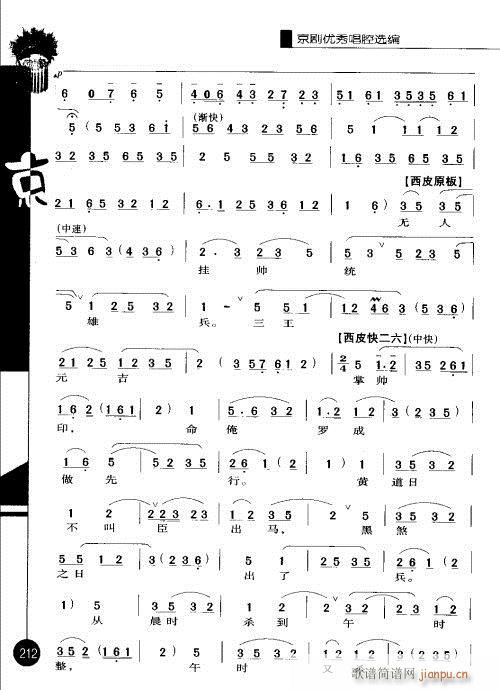 京剧优秀唱腔选编
6 0 7 6 5 | 4 0 6 4 3 2 7 2 3 | 5 1 6 1 3 5 3 5 6 1
(渐快)
5 ( 5 5 3 6 1 | 5 6 4 3 2 3 5 6 | 5 1 1 1 1 2
3 2 3 2 3 5 3 5 | 2 5 5 3 2 | 1 6 3 5 5 3 5
京
【西皮原板】
2 1 6 5 3 2 1 2 | 6. 1 2 5 3 6 1 2 | 1 6 ) 3 5 3 5
无 人
(中速)
5 3 6 3 ( 4 3 6 ) | 2. 3 2 3 | 5 3 5 2 5
挂 帅 统
5 1 2 5 3 2 | 1 - 5 5 1 | 1 2 4 6 3 ( 5 3 6 )
雄 兵。 三 王
【西皮快二六】(中快)
2 1 2 5 1 2 3 5 | 2 ( 3 5 7 6 1 2 ) | 2/4 5 1. 2 | 3 5 2 6 1
元 吉 掌 帅
1 6 2 ( 1 6 1 | 2 ) 1 | 5. 6 3 2 | 1. 2 2 | 3 ( 2 3 5 )
印, 命 俺 罗 成
1 6 5 | 5 2 3 5 | 2 6 ( 1 | 1 ) 1 | 3 5 3 5
做 先 行。 黄 道 日
1 2 | 2 2 3 2 3 | 1 2 3 5 | 2 ( 3 5 ) | 3 5 2
不 叫 臣 出 马, 黑 煞
5 5 1 2 | 3 ( 2 3 6 ) | 5 1 | 2 1 | 1 ( 2 3 5
之 日 出 了 兵。
1 ) 5 | 3 5 2 | 3 5 3 2 | 1 2 | 3 2 3 5
从 晨 时 杀 到 午 时
212
3 5 2 ( 1 6 1 | 2 )
整, 午 时 又
歌谱简谱网
jianpu.cn